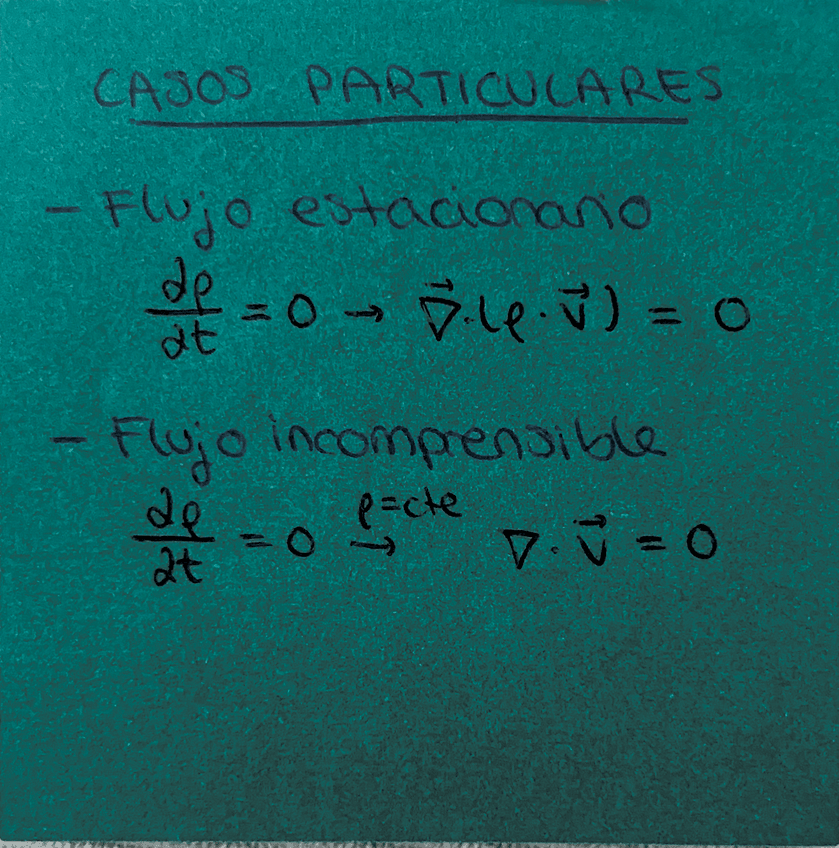 CASOS PARTICULARES
- Flujo estacionario
∂ρ/∂t = 0 → ∇⃗·(ρ·v⃗) = 0
- Flujo incomprensible
∂ρ/∂t = 0 →^{ρ=cte} ∇·v⃗ = 0